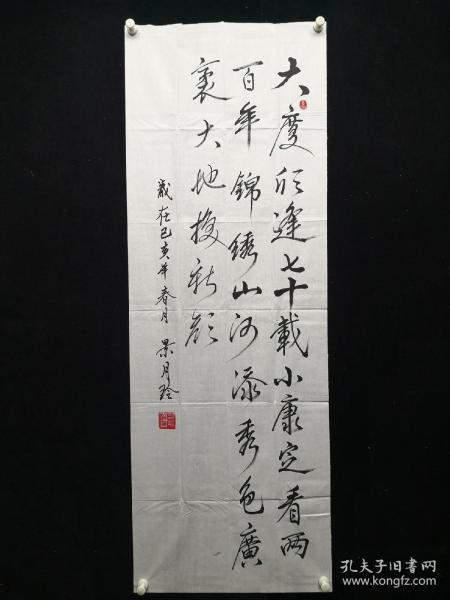 大度欣逢七十載小康定看兩
百年錦綉山河添秀色廣
袤大地換新顏
歲在己亥年春月 景月玲
孔夫子旧书网
www.kongfz.com